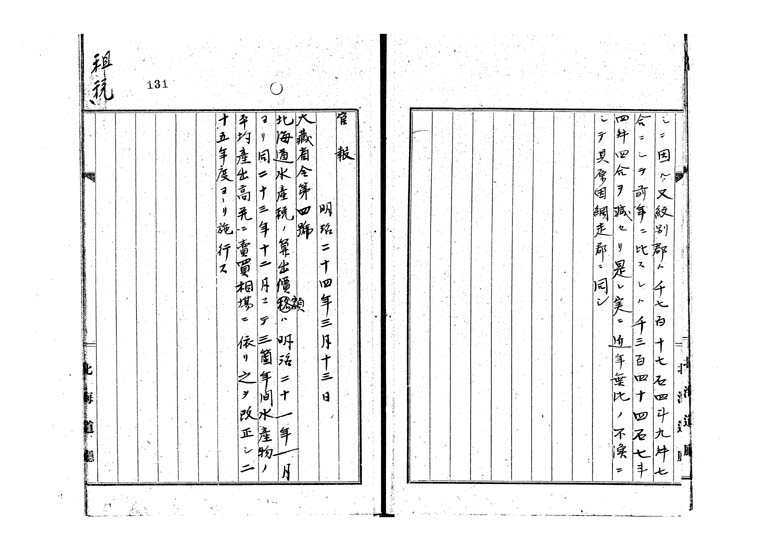 シニ因ル又紋別郡ハ千七百十七石四斗九升七
合ニシテ前年ニ比スレハ千三百四十四石七斗
四升四合ヲ減セリ是レ実ニ近年無比ノ不漁ニ
シテ其原因網走郡ニ同シ
北海道廳
租税
131
官報
明治二十四年三月十三日
大藏省令第四號
北海道水産税ノ算出價額ハ明治二十一年一月
ヨリ同二十三年十二月マテ三箇年間水産物ノ
平均産出高並ニ賣買相場ニ依リ之ヲ改正シ二
十五年度ヨリ施行ス
北海道廳